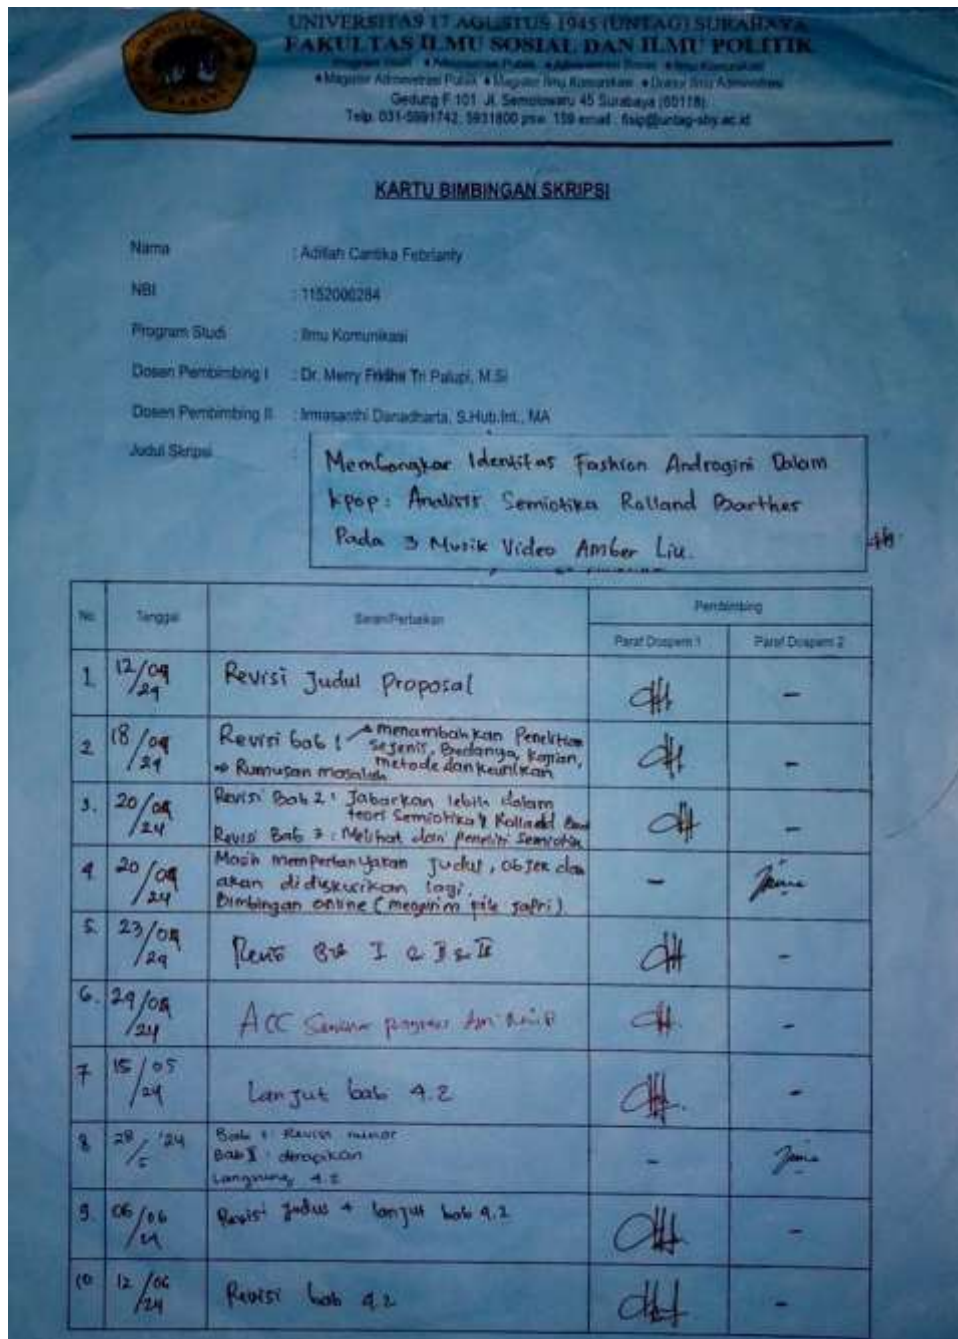 UNIVERSITAS 17 AGUSTUS 1945 (UNTAG) SURABAYA
FAKULTAS ILMU SOSIAL DAN ILMU POLITIK
Magister Administrasi Publik Magister Ilmu Komunikasi Doktor Ilmu Administrasi
Gedung F 101 Jl. Semolowaru 45 Surabaya (60118)
Telp. 031-5991742, 5931800 psw. 159 email : fisip@untag-sby.ac.id
KARTU BIMBINGAN SKRIPSI
Nama : Adillah Cantika Febrianty
NBI : 1152000284
Program Studi : Ilmu Komunikasi
Dosen Pembimbing I : Dr. Merry Fridha Tri Palupi, M.Si
Dosen Pembimbing II : Irmasanthi Danadharta, S.Hub.Int., MA
Judul Skripsi :
Membongkar Identitas Fashion Androgini Dalam
Kpop : Analisis Semiotika Rolland Barthes
Pada 3 Musik Video Amber Liu.
No. Tanggal Saran/Perbaikan Pembimbing
Paraf Dospem 1 Paraf Dospem 2
1. 12/04/24 Revisi Judul Proposal -
2 18/04/24 Revisi bab 1 menambahkan Penelitian
sejenis, Bedanya, Kajian,
metode dan keunikan
⇒ Rumusan masalah -
3. 20/04/24 Revisi Bab 2 : Jabarkan lebih dalam
teori Semiotika Rolland
Revisi Bab 3 : Melihat dan peneliti Semiotik -
4 20/04/24 Masih mempertanyakan judul, objek dan
akan didiskusikan lagi.
Bimbingan online (mengirim file). -
5. 23/04/24 I -
6. 29/04/24 ACC Seminar -
7 15/05/24 Lanjut bab 4.2 -
8 28/5 '24 Bab 1 : Revisi minor
Bab II : dirapikan
Langsung 4.2 -
9. 06/06/24 Revisi judul + lanjut bab 4.2 -
10 12/06/24 Revisi bab 4.2 -